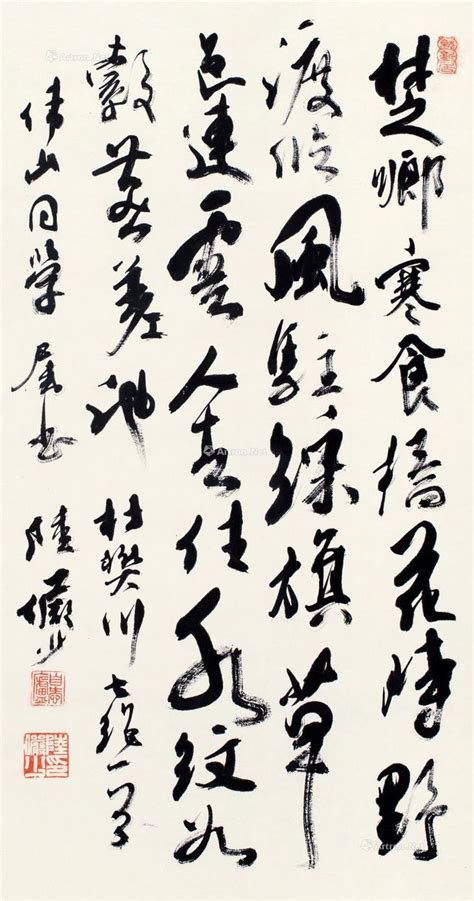 楚鄉寒食橘花時野
渡临風駐綵旗草
色連雲人去住水紋如
縠燕差池 杜樊川七絕一首
伟山同学属书 陸儼少
Artron.Net